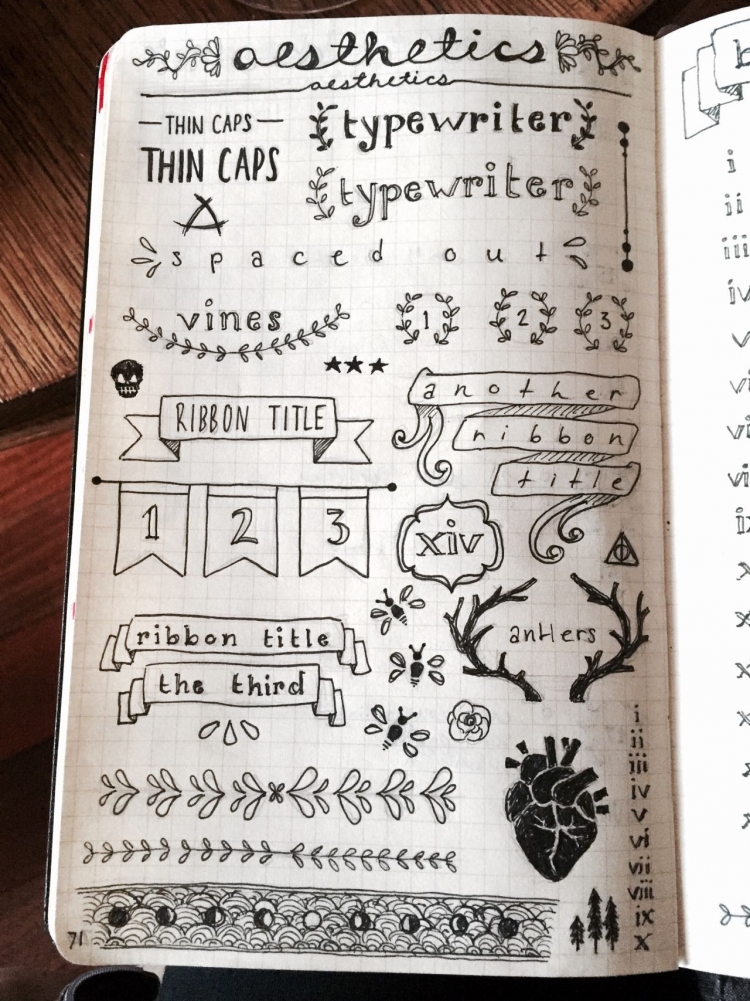 aesthetics
aesthetics
THIN CAPS
THIN CAPS
typewriter
typewriter
spaced out
vines
1 2 3
RIBBON TITLE
another
ribbon
title
1 2 3
xiv
ribbon title
the third
antlers
i
ii
iii
iv
v
vi
vii
viii
ix
x
71
b
i
ii
iii
iv
v